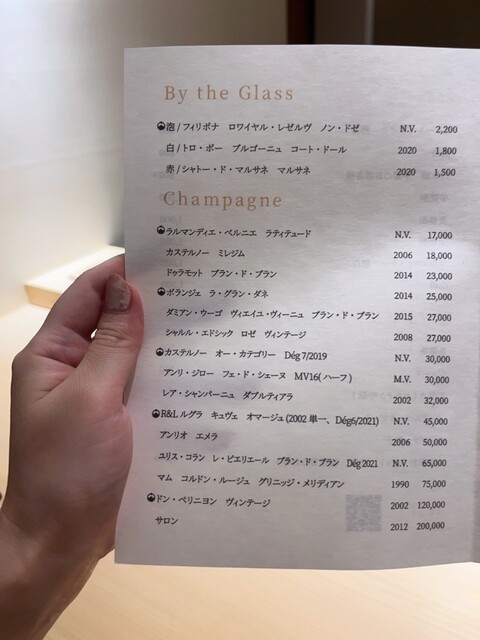 By the Glass
泡/フィリポナ ロワイヤル・レゼルヴ ノン・ドゼ N.V. 2,200
白/トロ・ボー ブルゴーニュ コート・ドール 2020 1,800
赤/シャトー・ド・マルサネ マルサネ 2020 1,500
Champagne
ラルマンディエ・ベルニエ ラティテュード N.V. 17,000
カステルノー ミレジム 2006 18,000
ドゥラモット ブラン・ド・ブラン 2014 23,000
ボランジェ ラ・グラン・ダネ 2014 25,000
ダミアン・ウーゴ ヴィエイユ・ヴィーニュ ブラン・ド・ブラン 2015 27,000
シャルル・エドシック ロゼ ヴィンテージ 2008 27,000
カステルノー オー・カテゴリー Dég 7/2019 N.V. 30,000
アンリ・ジロー フュ・ド・シェーヌ MV16(ハーフ) M.V. 30,000
レア・シャンパーニュ ダブルティアラ 2002 32,000
R&L ルグラ キュヴェ オマージュ(2002 単一、Dég6/2021) N.V. 45,000
アンリオ エメラ 2006 50,000
ユリス・コラン レ・ピエリエール ブラン・ド・ブラン Dég 2021 N.V. 65,000
マム コルドン・ルージュ グリニッジ・メリディアン 1990 75,000
ドン・ペリニヨン ヴィンテージ 2002 120,000
サロン 2012 200,000